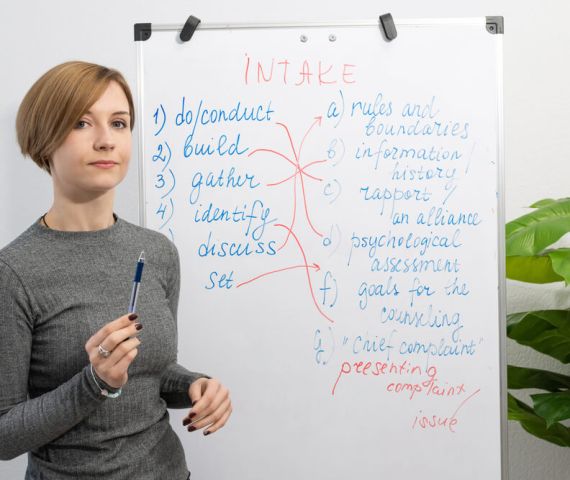 INTAKE
1) do/conduct
2) build
3) gather
4) identify
)
discuss
set
a) rules and
boundaries
b) information /
history
c) rapport /
an alliance
d) psychological
assessment
f) goals for the
counseling
g) "chief complaint"
presenting
complaint /
issue